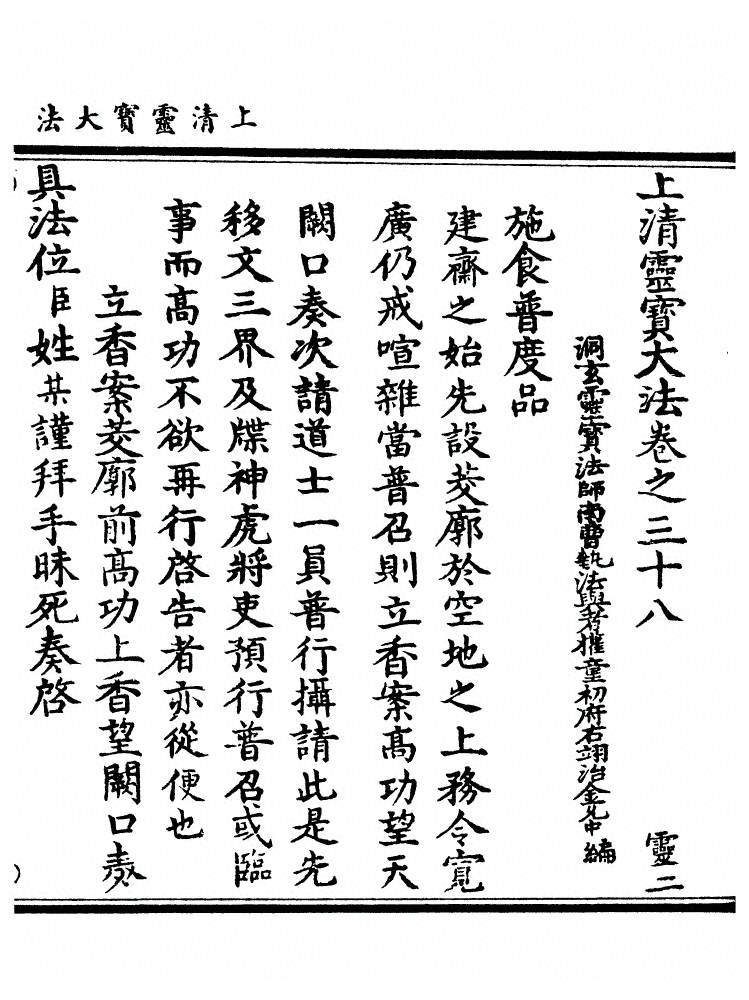 上清靈寶大法
上清靈寶大法卷之三十八 靈二
洞玄靈寶法師南曹執法典者權童初府右翊治金允中編
施食普度品
建齋之始先設茭廓於空地之上務令寬
廣仍戒喧雜當普召則立香案高功望天
闕口奏次請道士一員普行攝請此是先
移文三界及牒神虎將吏預行普召或臨
事而高功不欲再行啓告者亦從便也
立香案茭廓前高功上香望闕口奏
具法位臣姓某謹拜手昧死奏啓